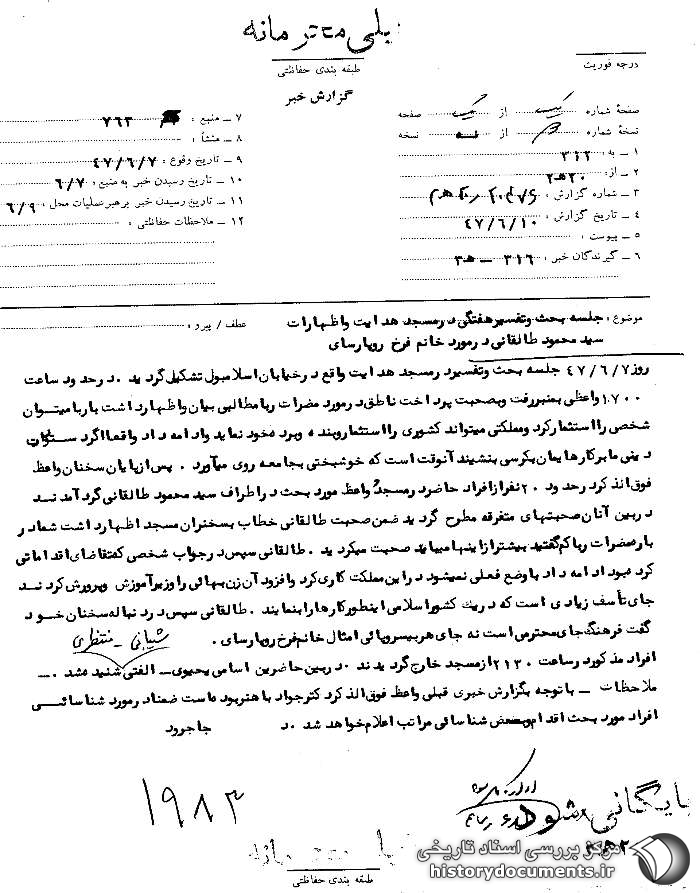 خیلی محرمانه
طبقه بندی حفاظتی
درجه فوریت
گزارش خبر
صفحهٔ شماره یک از یک صفحه
نسخهٔ شماره از نسخه
۱ ــ به : ۳۱۲
۲ ــ از : ۲۰ هـ ۲
۳ ــ شماره گزارش :
۴ ــ تاریخ گزارش : ۴۷/۶/۱۰
۵ ــ پیوست :
۶ ــ گیرندگان خبر : ۳۱۶ ــ ۳هـ
۷ ــ منبع : ۷۶۳
۸ ــ منشأ :
۹ ــ تاریخ وقوع : ۴۷/۶/۷
۱۰ ــ تاریخ رسیدن خبر به منبع : ۶/۷
۱۱ ــ تاریخ رسیدن خبر برهبر عملیات محل : ۶/۹
۱۲ ــ ملاحظات حفاظتی :
موضوع : جلسه بحث وتفسیر هفتگی درمسجد هدایت واظهارات
سید محمود طالقانی درمورد خانم فرخ روپارسای
عطف / پیرو :
روز ۴۷/۶/۷ جلسه بحث وتفسیردرمسجد هدایت واقع درخیابان اسلامبول تشکیل گردید . درحدود ساعت
۱۷۰۰ واعظی بمنبررفت وبصحبت پرداخت ناطق درمورد مضرات ربا مطالبی بیان واظهارداشت باربا میتوان
شخصی را استثمارکرد ومملکتی میتواند کشوری را استثماروبنده وبرده خود نماید وادامه داد واقعا اگردستوران
دینی ما برکارها یمان بکرسی بنشیند آنوقت است که خوشبختی بجامعه روی میآورد . پس ازپایان سخنان واعظ
فوق الذکردرحدود ۲۰ نفرازافراد حاضردرمسجد واعظ مورد بحث دراطراف سید محمود طالقانی گرد آمدند
دربین آنان صحبتهای متفرقه مطرح گردید ضمن صحبت طالقانی خطاب بسخنران مسجد اظهارداشت شما در
باره مضرات ربا کم گفتید بیشترازاینها میباید صحبت میکردید . طالقانی سپس درجواب شخصی که تقاضای اقداماتی
کرده بود ادامه داد با وضع فعلی نمیشود دراین مملکت کاری کرد وافزود آن زن بهائی را وزیرآموزش وپرورش کردند
جای تأسف زیادی است که دریک کشوراسلامی اینطورکارها را بنمایند . طالقانی سپس دردنباله سخنان خود
گفت فرهنگ جای محترمی است نه جای هربیسروپائی امثال خانم فرخ روپارسای .
شیبانی ــ منتظری
افراد مذکوردرساعت ۲۱۳۰ ازمسجد خارج گردیدند . دربین حاضرین اسامی یحیوی ــ الفتی شنیده شد .
ملاحظات ــ با توجه بگزارش خبری قبلی واعظ فوق الذکردکترجواد باهنربوده است ضمنا درمورد شناسائی
افراد مورد بحث اقدام وبمحض شناسائی مراتب اعلام خواهد شد . د جاجرود
بایگانی شود
۱۹۸۳
خیلی محرمانه
طبقه بندی حفاظتی
مرکز بررسی اسناد تاریخی
historydocuments.ir